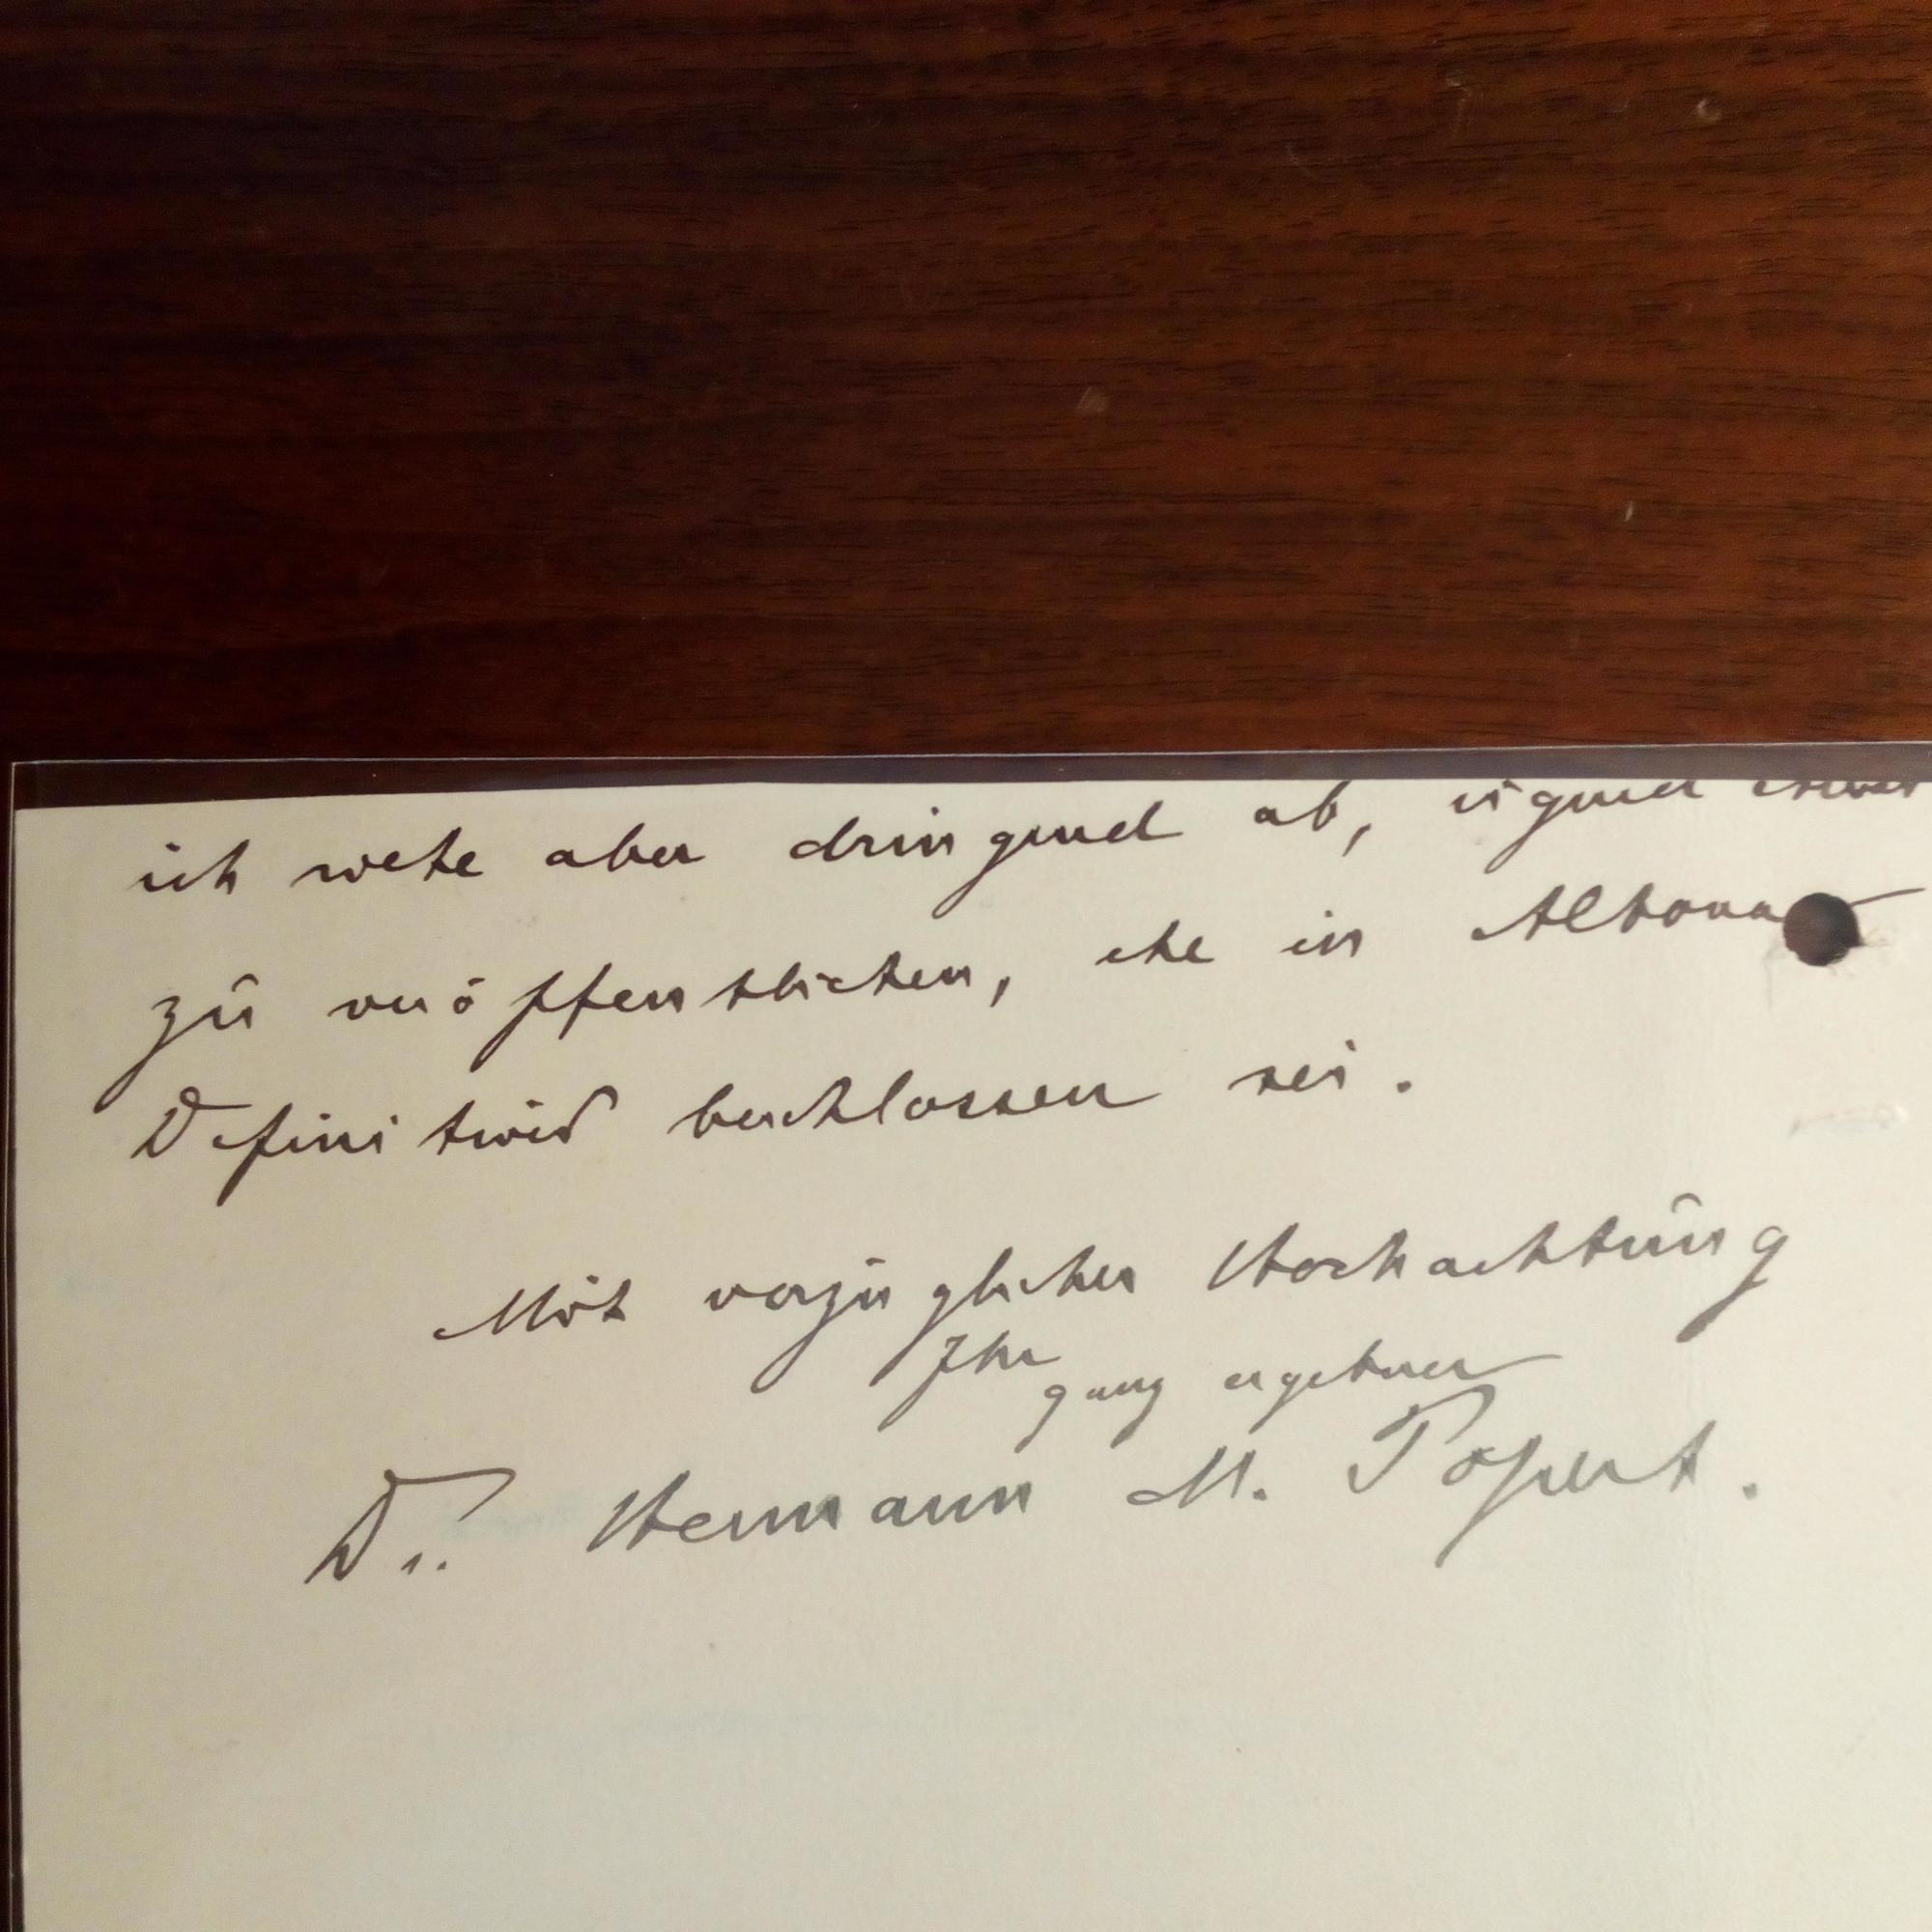 ich rate aber dringend ab, irgend etwas
zu veröffentlichen, ehe in Altona
Definitives beschlossen sei.
Mit vorzüglicher Hochachtung
Ihr
ganz ergebener
Dr. Hermann M. Popert.